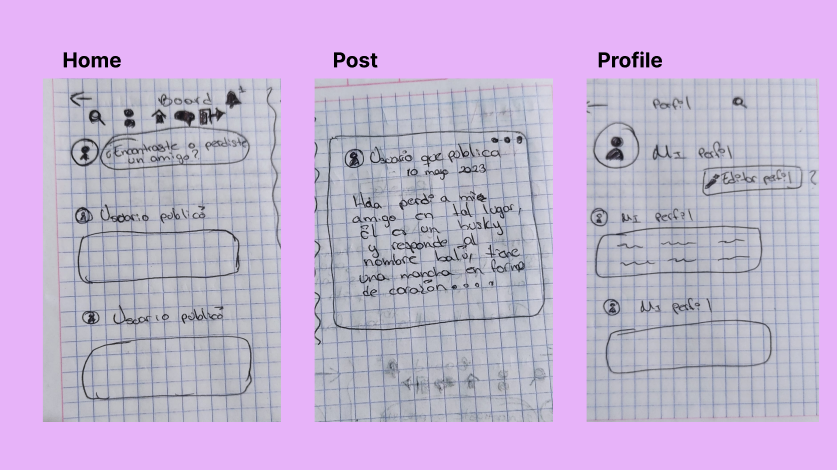 Home
Board
1
¿Encontraste o perdiste
un amigo?
Usuario publicó
Usuario publicó
Post
Usuario que publica
10 mayo 2023
Hola perdí a mi
amigo en tal lugar,
Él es un husky
y responde al
nombre balú, tiene
una mancha en forma
de corazón....
Profile
Perfil
Mi Perfil
Editar perfil
?
Mi perfil
Mi perfil